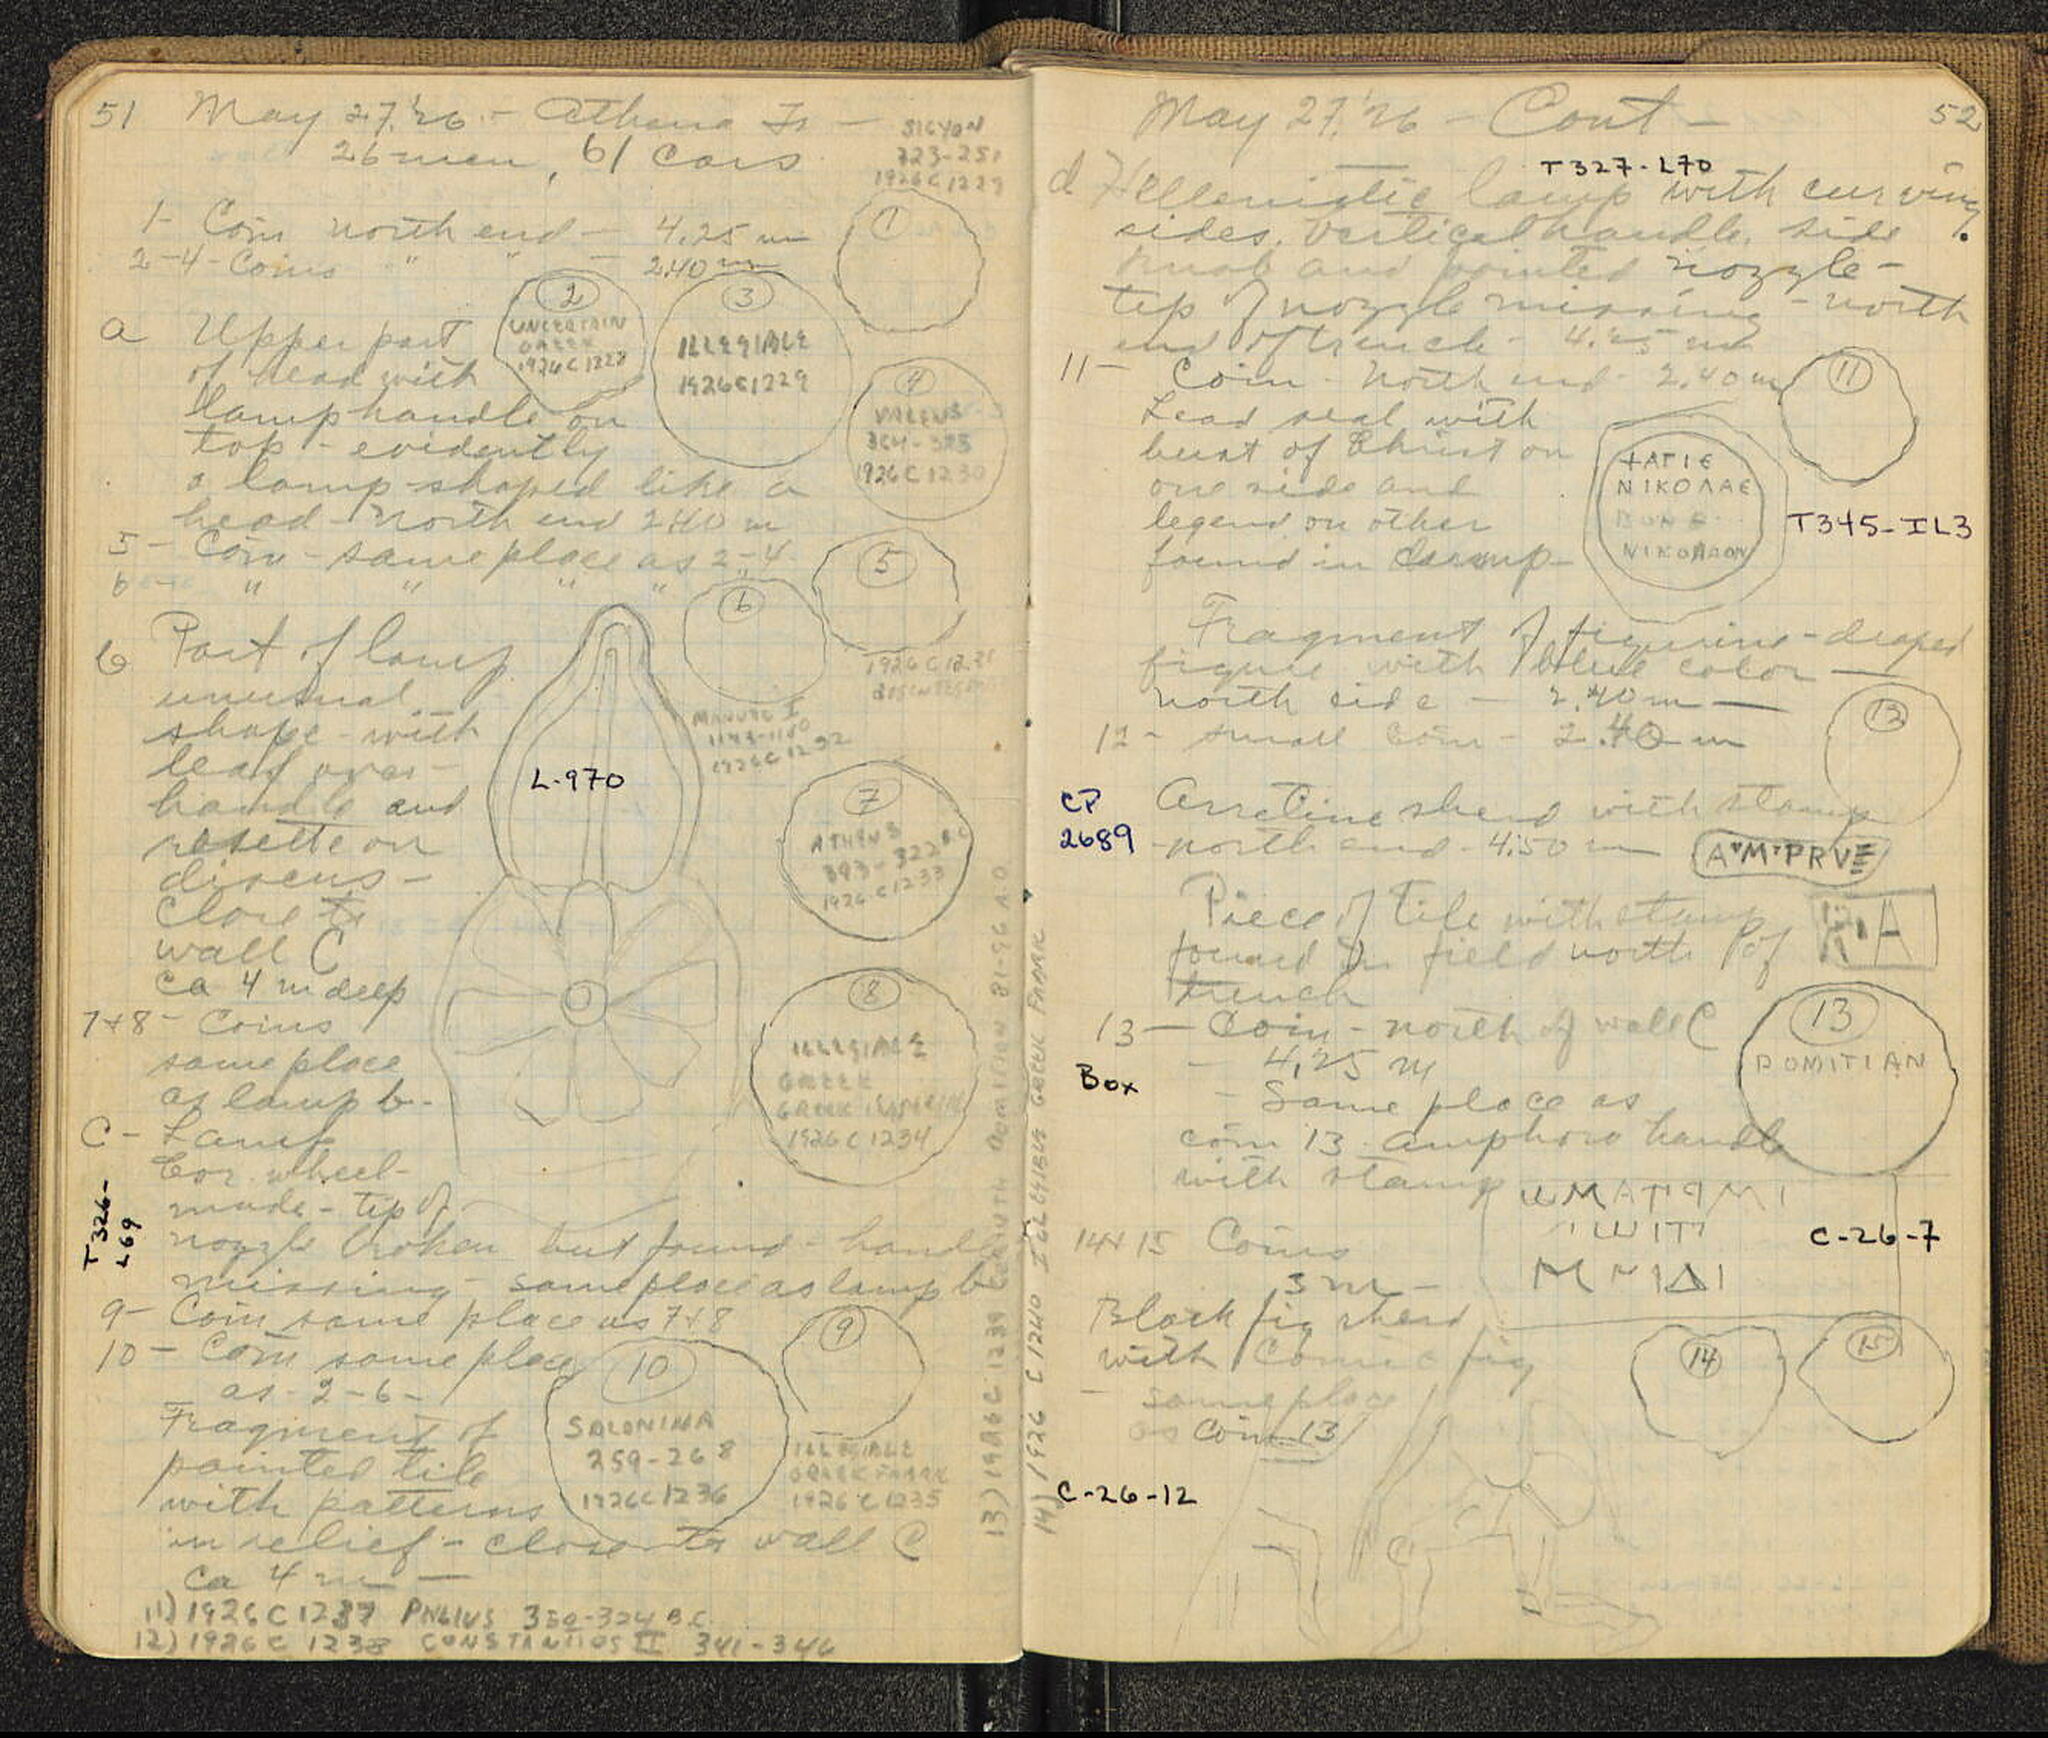 51 May 27, '26 - Athena Tr -
26 men, 61 cars
SICYON
323-251
1926 C 1227
1- Coin north end - 4.25 m
2-4- Coins " " - 2.40 m
①
②
UNCERTAIN
GREEK
1926 C 1228
③
ILLEGIBLE
1926 C 1229
④
VALENS
364-
1926 C 1230
a Upper part
of head with
lamp handle on
top - evidently
a lamp shaped like a
head - north end 2.40 m
5- Coin - same place as 2-4
6 " " " "
⑤
1926 C 1231
⑥
MANUEL I
1143-1180
1926 C 1232
b Part of lamp
unusual
shape - with
leaf over
handle and
rosette on
discus -
close to
wall C
ca 4 m deep
L-970
⑦
ATHENS
393-322 B.C.
1926 C 1233
7+8- Coins
same place
as lamp b-
⑧
ILLEGIBLE
GREEK
1926 C 1234
C- Lamp
Cor. wheel-
made - tip of
nozzle broken but found - handle
missing - same place as lamp b
T326-
L69
9- Coin same place as 7+8
10- Coin same place
as 2-6-
⑨
ILLEGIBLE
GREEK FABRIC
1926 C 1235
⑩
SALONINA
259-268
1926 C 1236
Fragment of
painted tile
with patterns
in relief - close to wall C
ca 4 m -
11) 1926 C 1237 PHLIUS 350-324 B.C.
12) 1926 C 1238 CONSTANTIUS II 341-346
13) 1926 C 1239 CORINTH DOMITIAN 81-96 A.D.
14) 1926 C 1240 ILLEGIBLE GREEK FABRIC
May 27, '26 - Cont - 52
T327-L70
d Hellenistic lamp with curving
sides, vertical handle, side
knob and pointed nozzle -
tip of nozzle missing - north
end of trench - 4.25 m
11- Coin - North end - 2.40 m
⑪
Lead seal with
bust of Christ on
one side and
legend on other
found in dump -
+ΑΓΙΕ
ΝΙΚΟΛΑΕ
ΝΙΚΟΛΑΟΝ
T345-IL3
Fragment of figurine - draped
figure with blue color -
north side - 2.40 m -
12- small coin - 2.40 m
⑫
CP
2689
Arretine sherd with stamp
north end - 4.50 m
A·M·PRVE
Piece of tile with stamp
found in field north of
trench
A
13- Coin - north of wall C
- 4.25 m
⑬
DOMITIAN
Box
- Same place as
coin 13 - amphora handle
with stamp
C-26-7
14+15 Coins
3 m -
⑭
⑮
Black fig sherd
with comic fig
- same place
as Coin 13
C-26-12